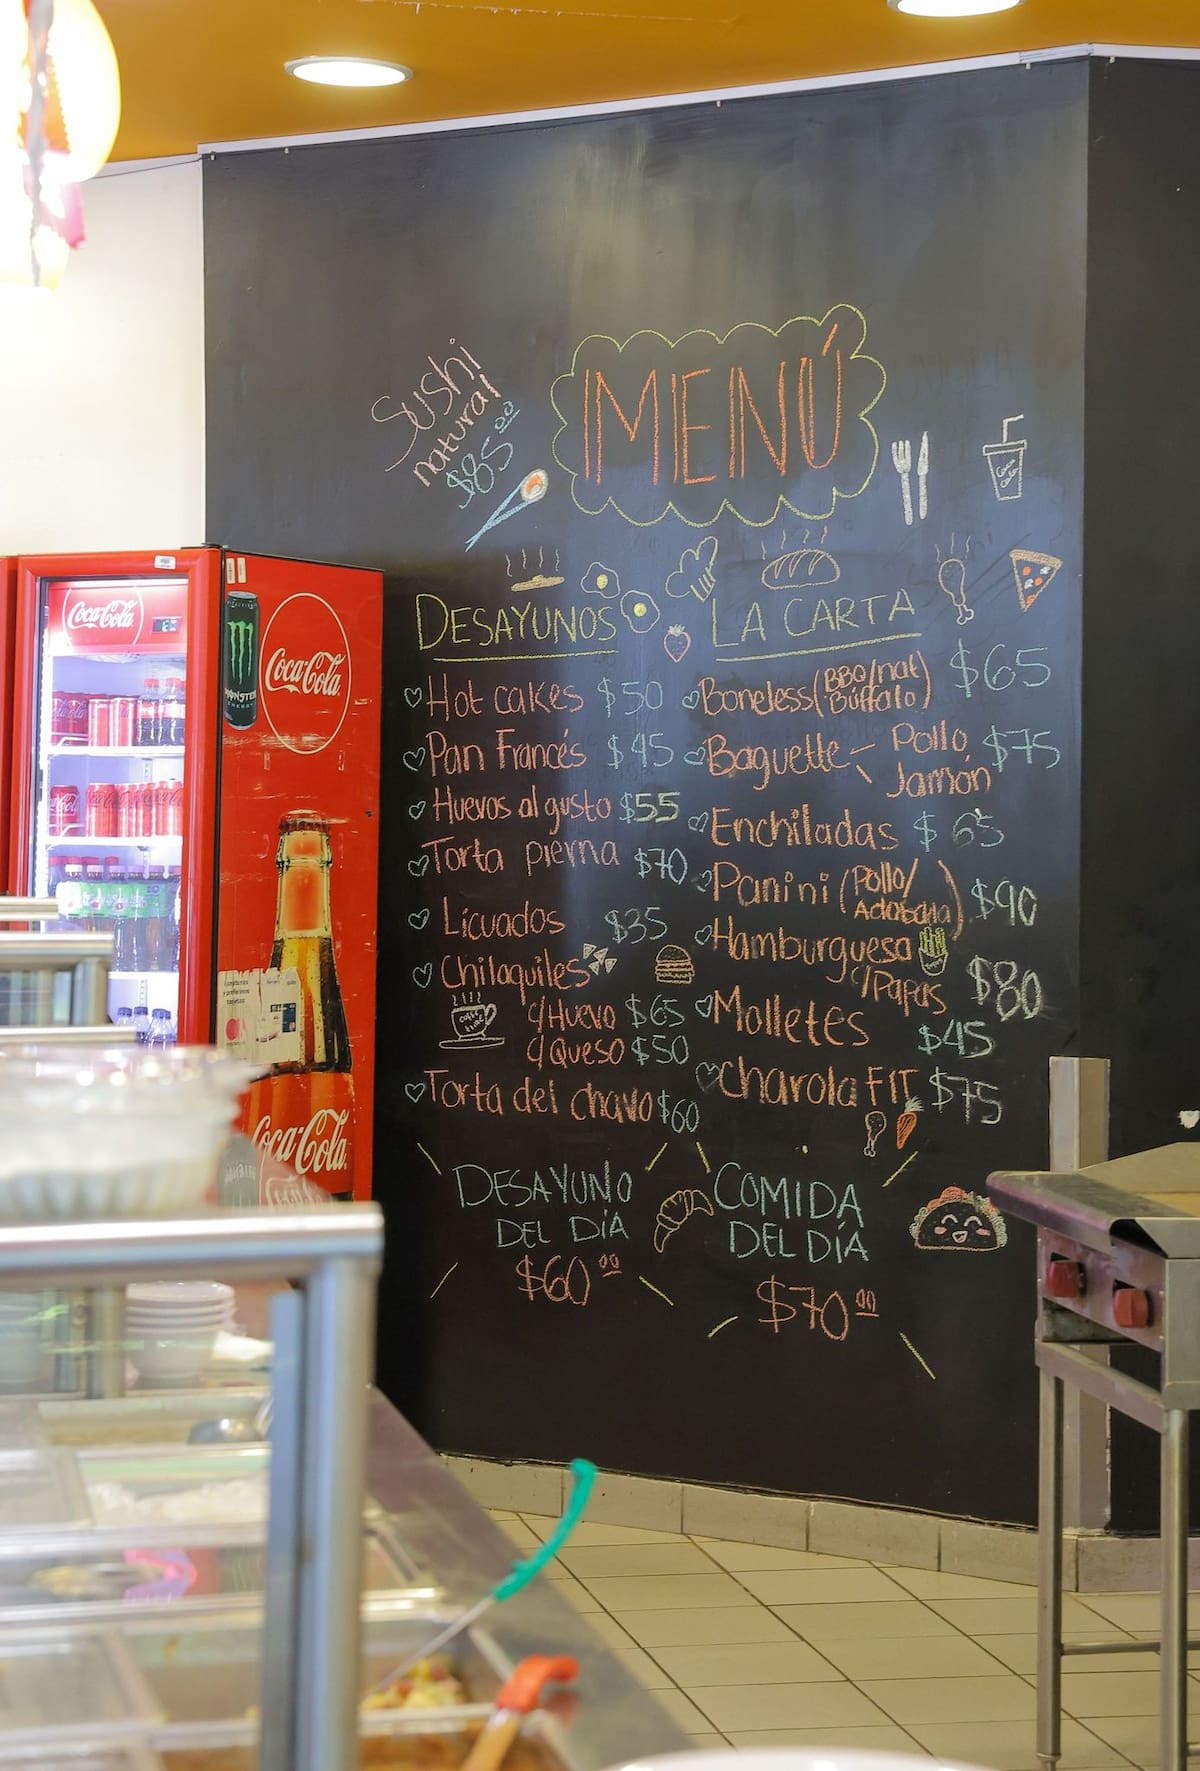 Sushi
natural
$85.00
MENÚ
DESAYUNOS
Hot cakes $50
Pan Francés $45
Huevos al gusto $55
Torta pierna $70
Licuados $35
Chilaquiles
c/Huevo $65
c/Queso $50
Torta del chavo $60
coffee time
LA CARTA
Boneless (BBQ/nat $65
Búffalo)
Baguette - Pollo $75
\ Jamón
Enchiladas $65
Panini (Pollo/ $90
Adobada)
Hamburguesa
c/Papas $80
Molletes $45
Charola FIT $75
DESAYUNO
DEL DÍA
$60.00
COMIDA
DEL DÍA
$70.00
Coca-Cola
MONSTER
ENERGY
Coca-Cola
Coca-Cola